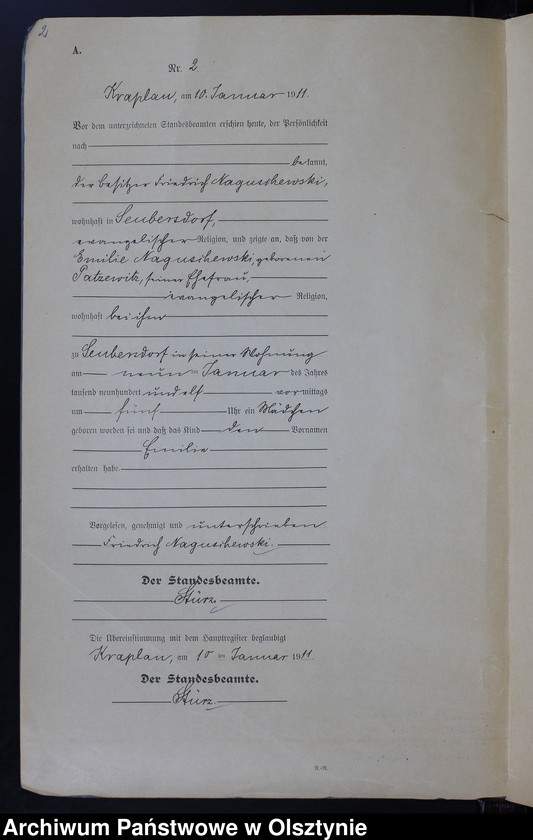 2
A.
Nr. 2.
Kraplau, am 10. Januar 1911.
Vor dem unterzeichneten Standesbeamten erschien heute, der Persönlichkeit
nach
bekannt,
der Besitzer Friedrich Naguschewski,
wohnhaft in Seubersdorf,
evangelischer Religion, und zeigte an, daß von der
Emilie Naguschewski, geborenen
Patzewitz, seiner Ehefrau,
evangelischer Religion,
wohnhaft bei ihm
zu Seubersdorf in seiner Wohnung
am neunten Januar des Jahres
tausend neunhundert und elf vormittags
um fünf Uhr ein Mädchen
geboren worden sei und daß das Kind den Vornamen
Emilie
erhalten habe.
Vorgelesen, genehmigt und unterschrieben
Friedrich Naguschewski.
Der Standesbeamte.
Stürz.
Die Übereinstimmung mit dem Hauptregister beglaubigt
Kraplau, am 10ten Januar 1911.
Der Standesbeamte.
Stürz.
Archiwum Państwowe w Olsztynie